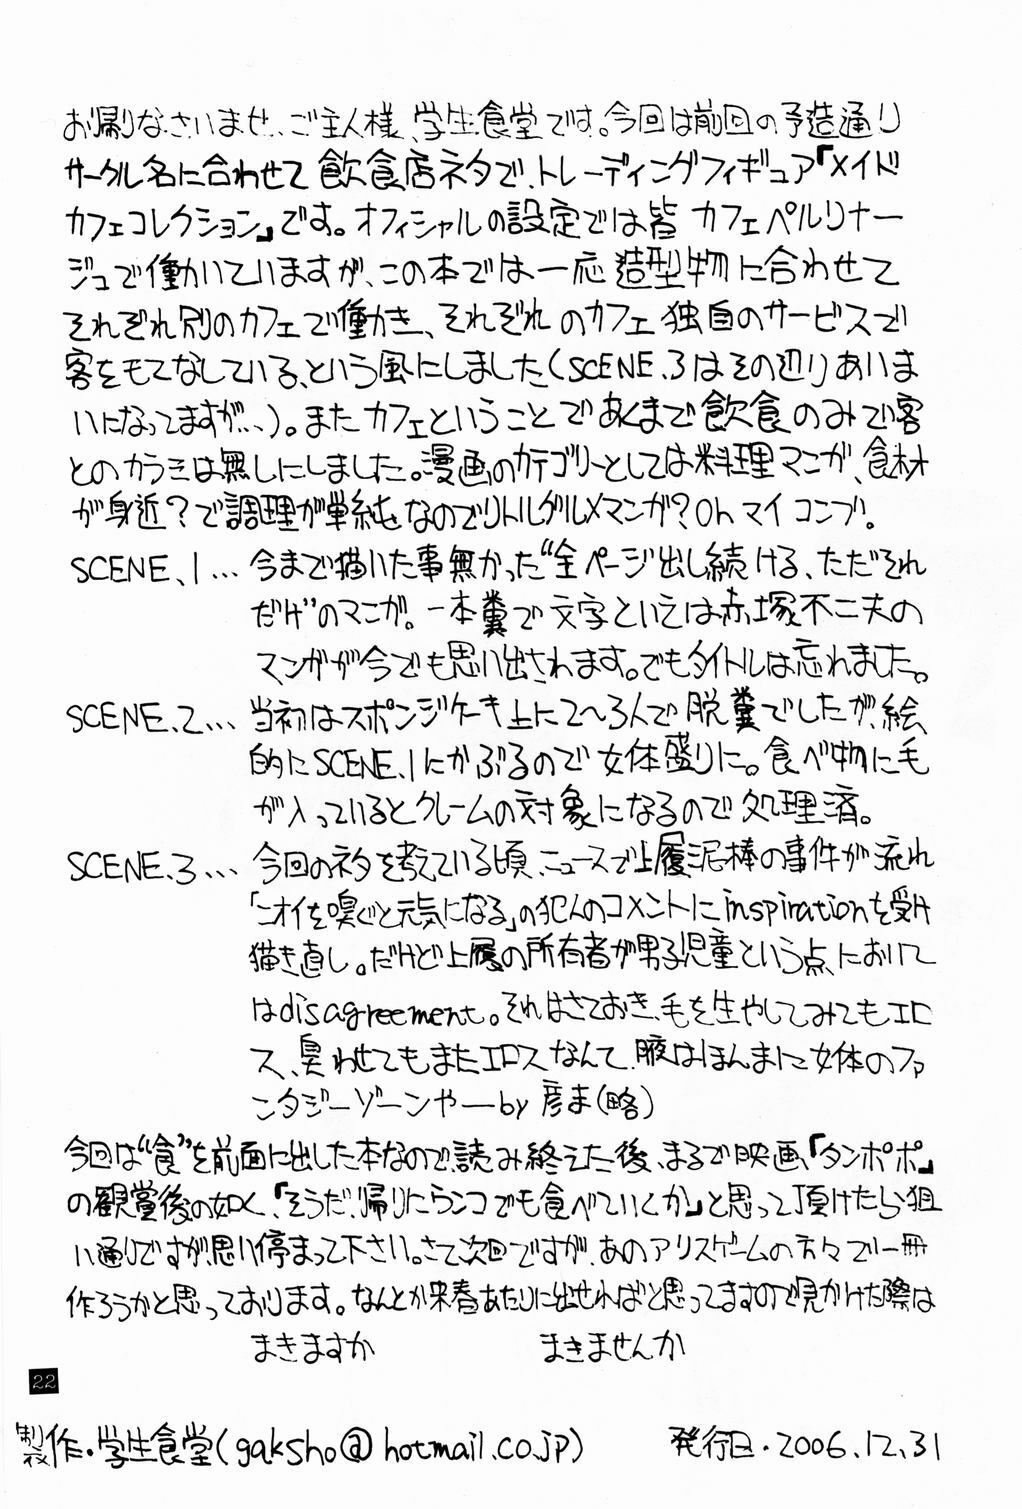 お帰りなさいませ、ご主人様、学生食堂です。今回は前回の予造通り
サークル名に合わせて飲食店ネタで、トレーディングフィギュア『メイド
カフェコレクション』です。オフィシャルの設定では皆カフェペルリナー
ジュで働いていますが、この本では一応造型物に合わせて
それぞれ別のカフェで働き、それぞれのカフェ独自のサービスで
客をもてなしている、という風にしました(SCENE.3はその辺りあいま
いになってますが…)。またカフェということであくまで飲食のみで客
とのカラミは無しにしました。漫画のカテゴリーとしては料理マンガ、食材
が身近?で調理が単純なのでリトルグルメマンガ?Ohマイコンブ。
SCENE.1… 今まで描いた事無かった“全ページ出し続ける、ただそれ
だけ”のマンガ。一本糞で文字といえば赤塚不二夫の
マンガが今でも思い出されます。でもタイトルは忘れました。
SCENE.2… 当初はスポンジケーキ上に2〜3人で脱糞でしたが、絵
的にSCENE.1にかぶるので女体盛りに。食べ物に毛
が入っているとクレームの対象になるので処理済。
SCENE.3… 今回のネタを考えている頃、ニュースで上履泥棒の事件が流れ
「ニオイを嗅ぐと元気になる」の犯人のコメントにinspirationを受け
描き直し。だけど上履の所有者が男子児童という点において
はdisagreement。それはさておき、毛を生やしてみてもエロ
ス、臭わせてもまたエロスなんて、腋はほんまに女体のファ
ンタジーゾーンや―by 彦ま(略)
今回は“食”を前面に出した本なので、読み終えた後、まるで映画『タンポポ』
の観賞後の如く、『そうだ、帰りにウンコでも食べていくか』と思って頂けたら狙
い通りですが、思い停まって下さい。さて次回ですが、あのアリスゲームの方々で一冊
作ろうかと思っております。なんとか来春あたりに出せればと思ってますので見かけた際は
まきますか まきませんか
22
製作・学生食堂(gaksho@hotmail.co.jp) 発行日・2006.12.31